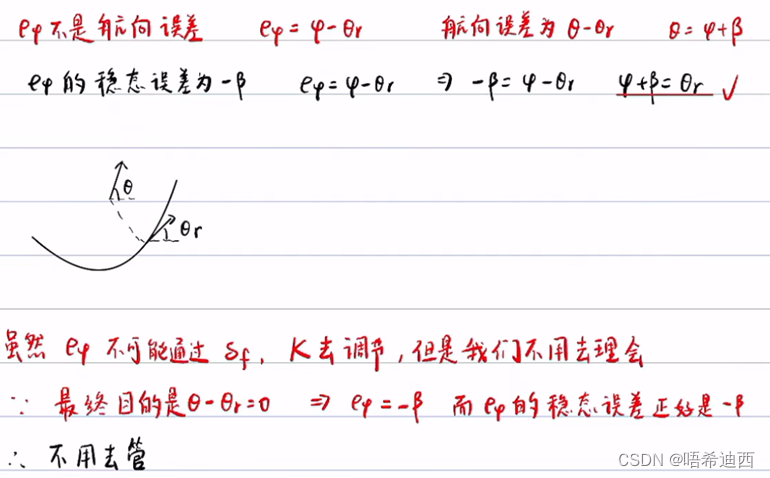 eφ不是航向误差 eφ=φ-θr 航向误差为θ-θr θ=φ+β
eφ的稳态误差为-β eφ=φ-θr ⇒ -β=φ-θr φ+β=θr ✓
θ
θr
虽然 eφ 不可能通过 δf, K去调节,但是我们不用去理会
∵ 最终目的是θ-θr=0 ⇒ eφ=-β 而eφ的稳态误差正好是-β
∴ 不用去管
CSDN @唔希迪西